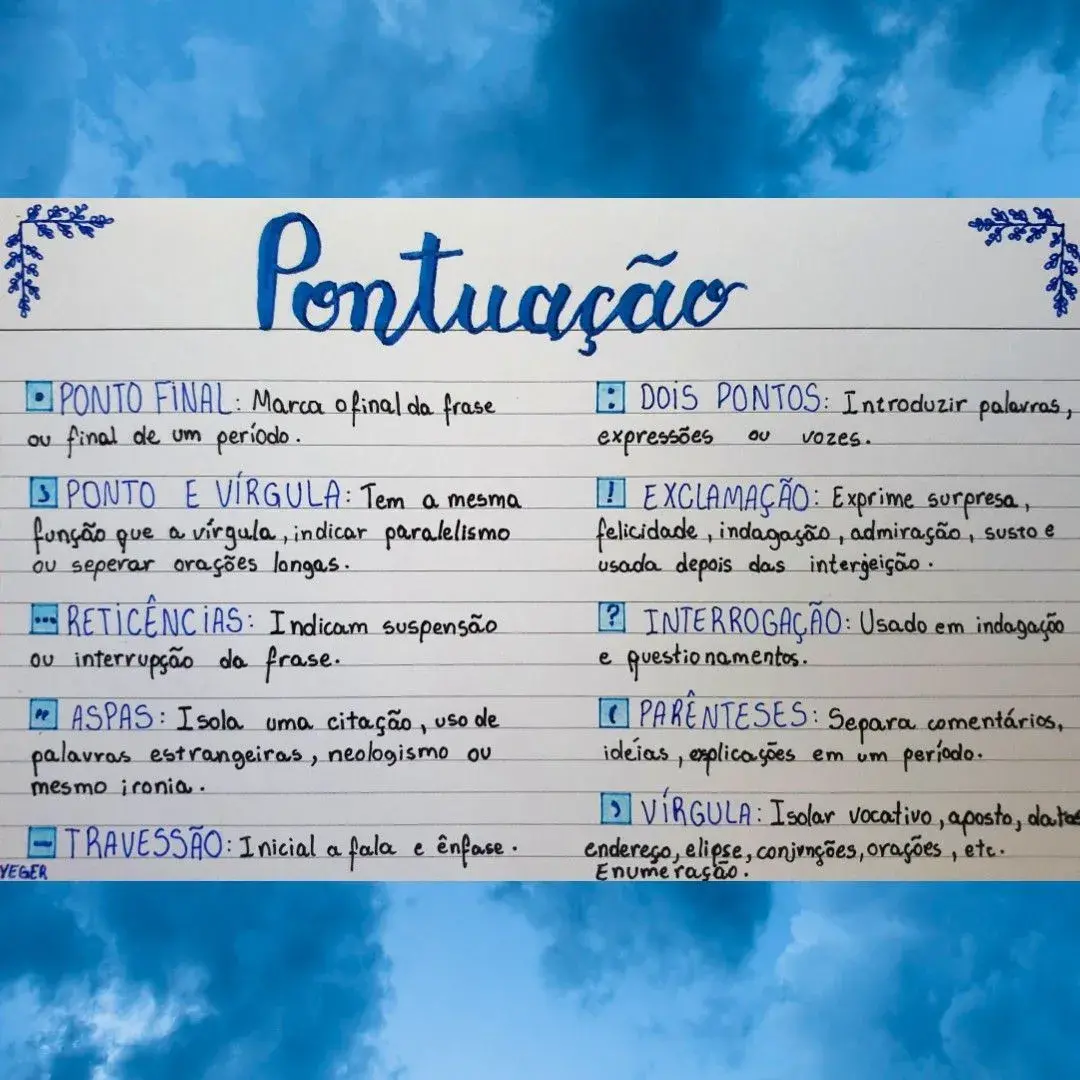 Pontuação
• PONTO FINAL: Marca o final da frase
ou final de um período.
; PONTO E VÍRGULA: Tem a mesma
função que a vírgula, indicar paralelismo
ou seperar orações longas.
... RETICÊNCIAS: Indicam suspensão
ou interrupção da frase.
" ASPAS: Isola uma citação, uso de
palavras estrangeiras, neologismo ou
mesmo ironia.
– TRAVESSÃO: Inicial a fala e ênfase.
YEGER
: DOIS PONTOS: Introduzir palavras,
expressões ou vozes.
! EXCLAMAÇÃO: Exprime surpresa,
felicidade, indagação, admiração, susto e
usada depois das interjeição.
? INTERROGAÇÃO: Usado em indagação
e questionamentos.
( PARÊNTESES: Separa comentários,
ideias, explicações em um período.
, VÍRGULA: Isolar vocativo, aposto, datas
endereço, elipse, conjunções, orações, etc.
Enumeração.